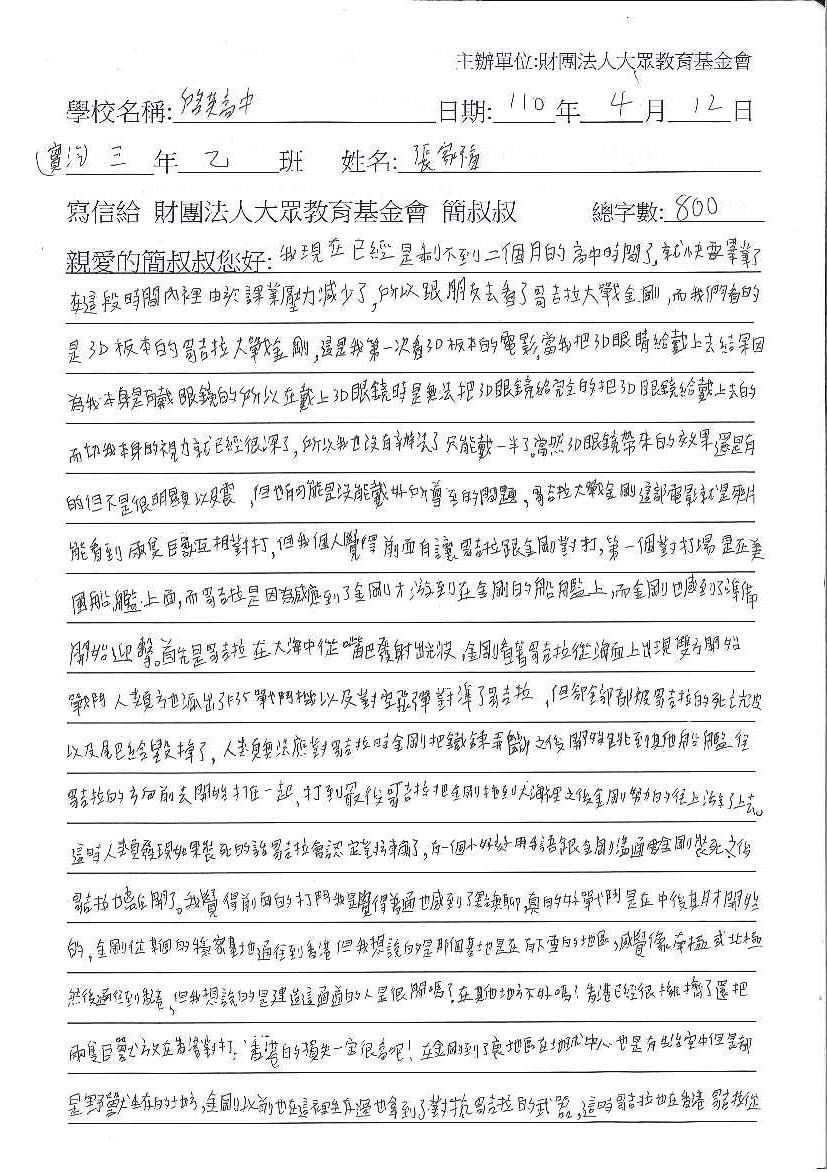 主辦單位:財團法人大眾教育基金會
學校名稱:啓英高中 日期:110年4月12日
(實汽)三年乙班 姓名:張家
寫信給 財團法人大眾教育基金會 簡叔叔 總字數:800
親愛的簡叔叔您好:我現在已經是剩不到二個月的高中時間了,就快要畢業了
在這段時間內裡由於課業壓力減少了,所以跟朋友去看了哥吉拉大戰金剛,而我們看的
是3D板本的哥吉拉大戰金剛,這是我第一次看3D板本的電影,當我把3D眼睛給戴上去結果因
為我本身是有戴眼鏡的所以在戴上3D眼鏡時是無法把3D眼鏡給完全的把3D眼鏡給戴上去的
而切我本身的視力就已經很深了,所以我也沒有辦法了只能戴一半了。當然3D眼鏡帶來的效果還是有
的但不是很明顯以及震,但也有可能是沒能戴好所導至的問題,哥吉拉大戰金剛這部電影就是爽片
能看到兩隻巨獸互相對打,但我個人覺得前面有讓哥吉拉跟金剛對打,第一個對打場是在美
國船艦上面,而哥吉拉是因為感應到了金剛才游到在金剛的船艦上,而金剛也感到了準備
開始迎擊。首先是哥吉拉在大海中從嘴巴發射出光波,金剛看著哥吉拉從海面上出現雙方開始
戰鬥人類方也派出了F35戰鬥機以及對空飛彈對準了哥吉拉,但卻全部都被哥吉拉的死亡光波
以及尾巴給毀掉了,人類無法應對哥吉拉時金剛把鐵鍊弄斷之後開始跳到其他船艦往
哥吉拉的方向前去開始打在一起,打到最後哥吉拉把金剛拖到大海裡之後金剛努力的往上游了上去。
這時人類發現如果裝死的話哥吉拉會認定勝利了,有一個小女孩用手語跟金剛溝通金剛裝死之後
哥吉拉也離開了。我覺得前面的打鬥我是覺得普通也感到了點無聊,真的好戰鬥是在中後其才開始
的,金剛從美國的秘密基地通往到香港但我想說的是那個基地是在有下雪的地區,感覺像南極或北極
然後通往到香港,但我想說的是建造這通道的人是很閒嗎?在其他地方不好嗎?香港已經很擁擠了還把
兩隻巨獸放在香港對打,香港的損失一定很高吧!在金剛到了裏地區在地球中心也是有生活空中但是都
是野獸生存的地方,金剛以前也在這裡生存過也拿到了對抗哥吉拉的武器,這時哥吉拉也在香港 哥吉拉從